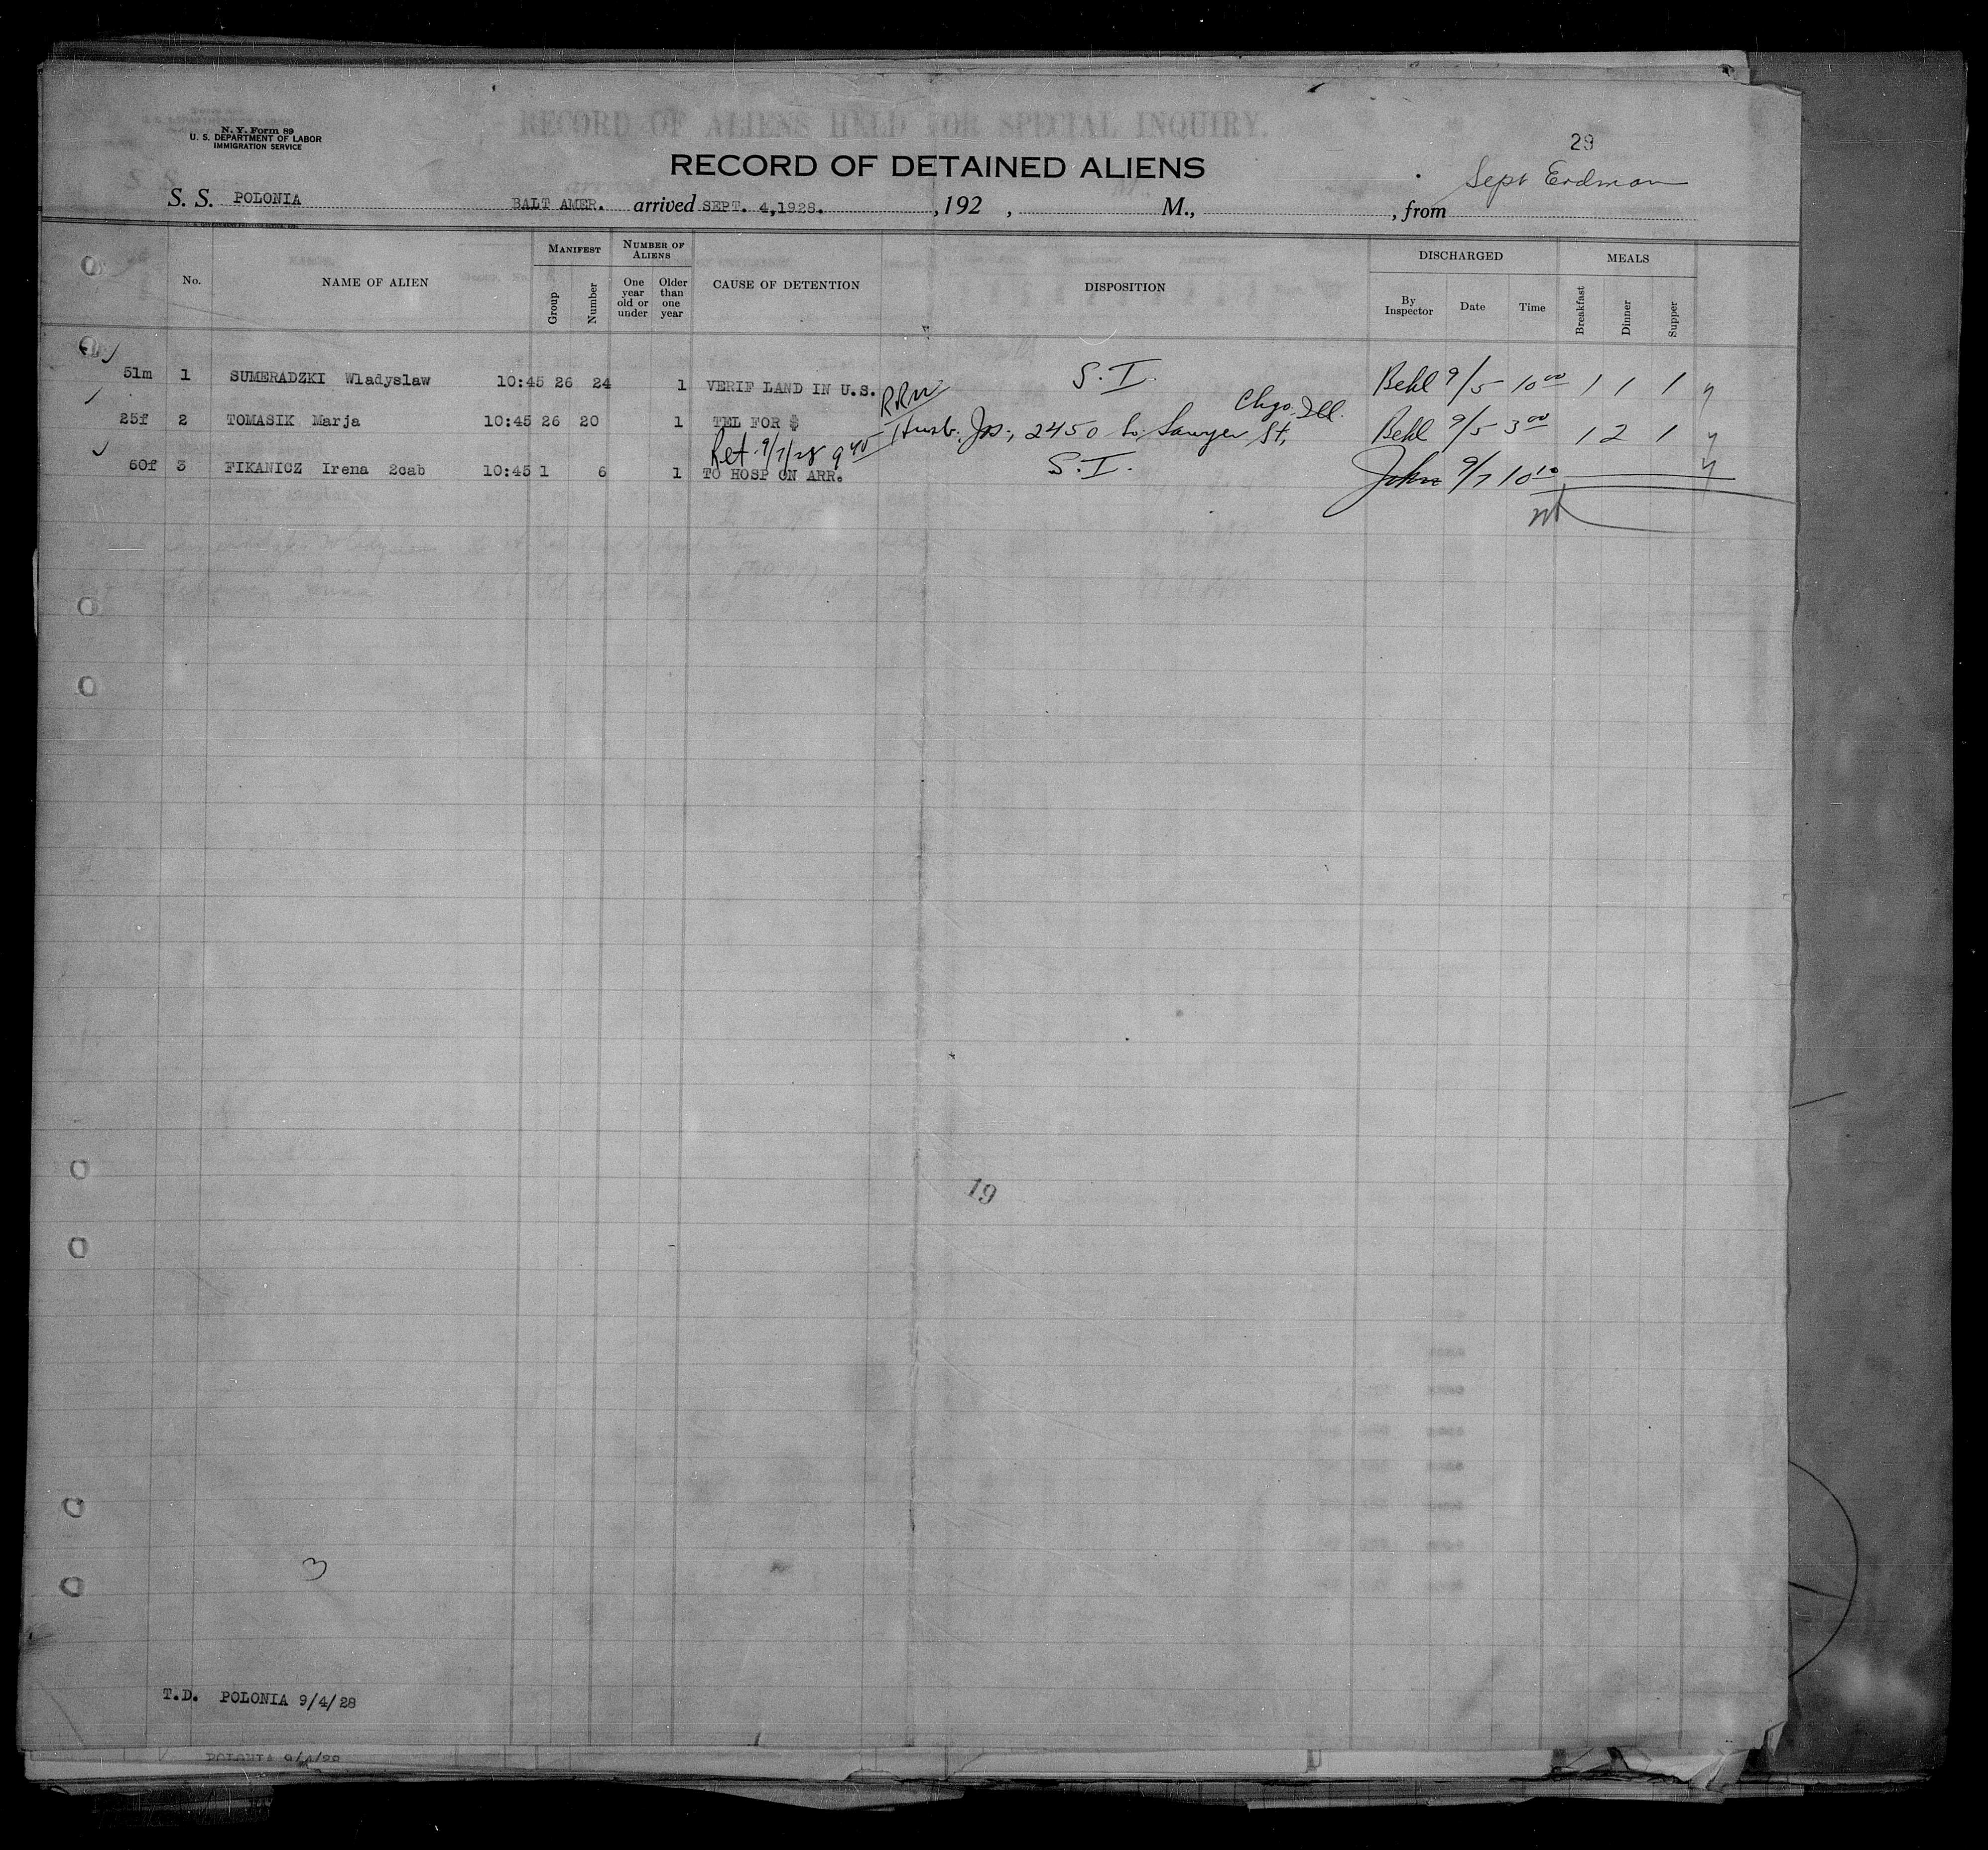 N. Y. Form 89
U. S. DEPARTMENT OF LABOR
IMMIGRATION SERVICE
RECORD OF ALIENS HELD FOR SPECIAL INQUIRY.
29
RECORD OF DETAINED ALIENS
Sept Erdman
S. S. POLONIA BALT AMER. arrived SEPT. 4,1928. , 192 , M., , from
No. NAME OF ALIEN MANIFEST Group Number NUMBER OF ALIENS One year old or under Older than one year CAUSE OF DETENTION DISPOSITION DISCHARGED By Inspector Date Time MEALS Breakfast Dinner Supper
51m 1 SUMERADZKI Wladyslaw 10:45 26 24 1 VERIF LAND IN U.S. S.I. Behl 9/5 10 00 1 1 1
RRW
Chgo. Ill.
25f 2 TOMASIK Marja 10:45 26 20 1 TEL FOR $ Husb. Jos., 2450 So. Sawyer St, Behl 9/5 3 00 1 2 1
Ret 9/7/28 9 40
60f 3 FIKANICZ Irena 2cab 10:45 1 6 1 TO HOSP ON ARR. S.I. John 9/7 10 10
19
3
T.D. POLONIA 9/4/28
POLONIA 9/4/28